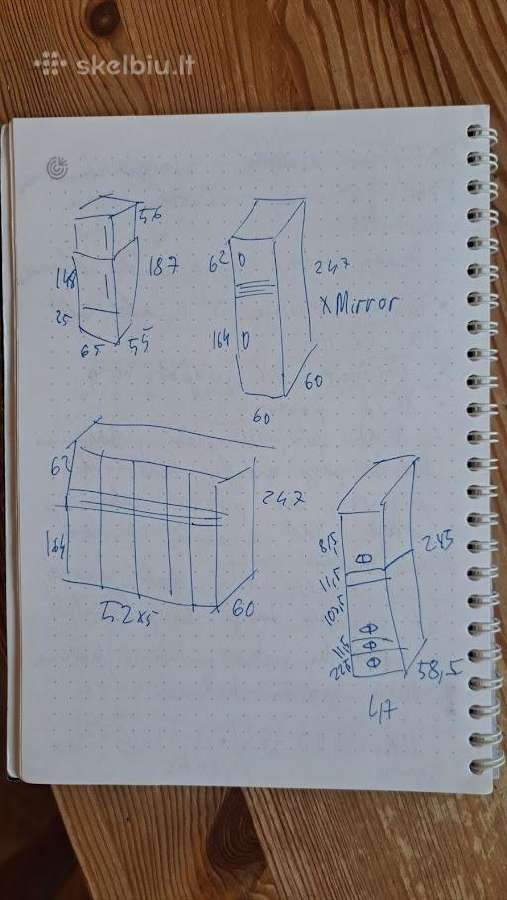 skelbiu.lt
56
148
187
25
65
55
62
247
x Mirror
164
60
60
62
247
164
52 x5
60
81,5
245
11,5
103,5
11,5
22,5
58,5
47